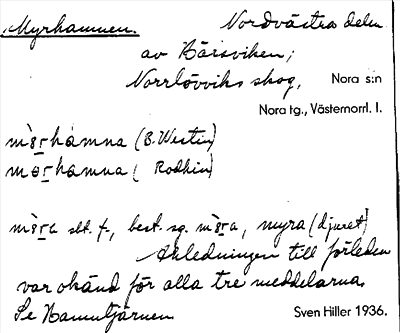 Myrhamnen. Nordvästra delen
av Bärsviken;
Norrlövviks skog, Nora s:n
Nora tg., Västernorrl. l.
(B. Westin)
( Rodhin)
slt. f., best. sg. myra (djuret)
Anledningen till förleden
var okänd för alla tre meddelarna.
Se Hamntjärnen Sven Hiller 1936.